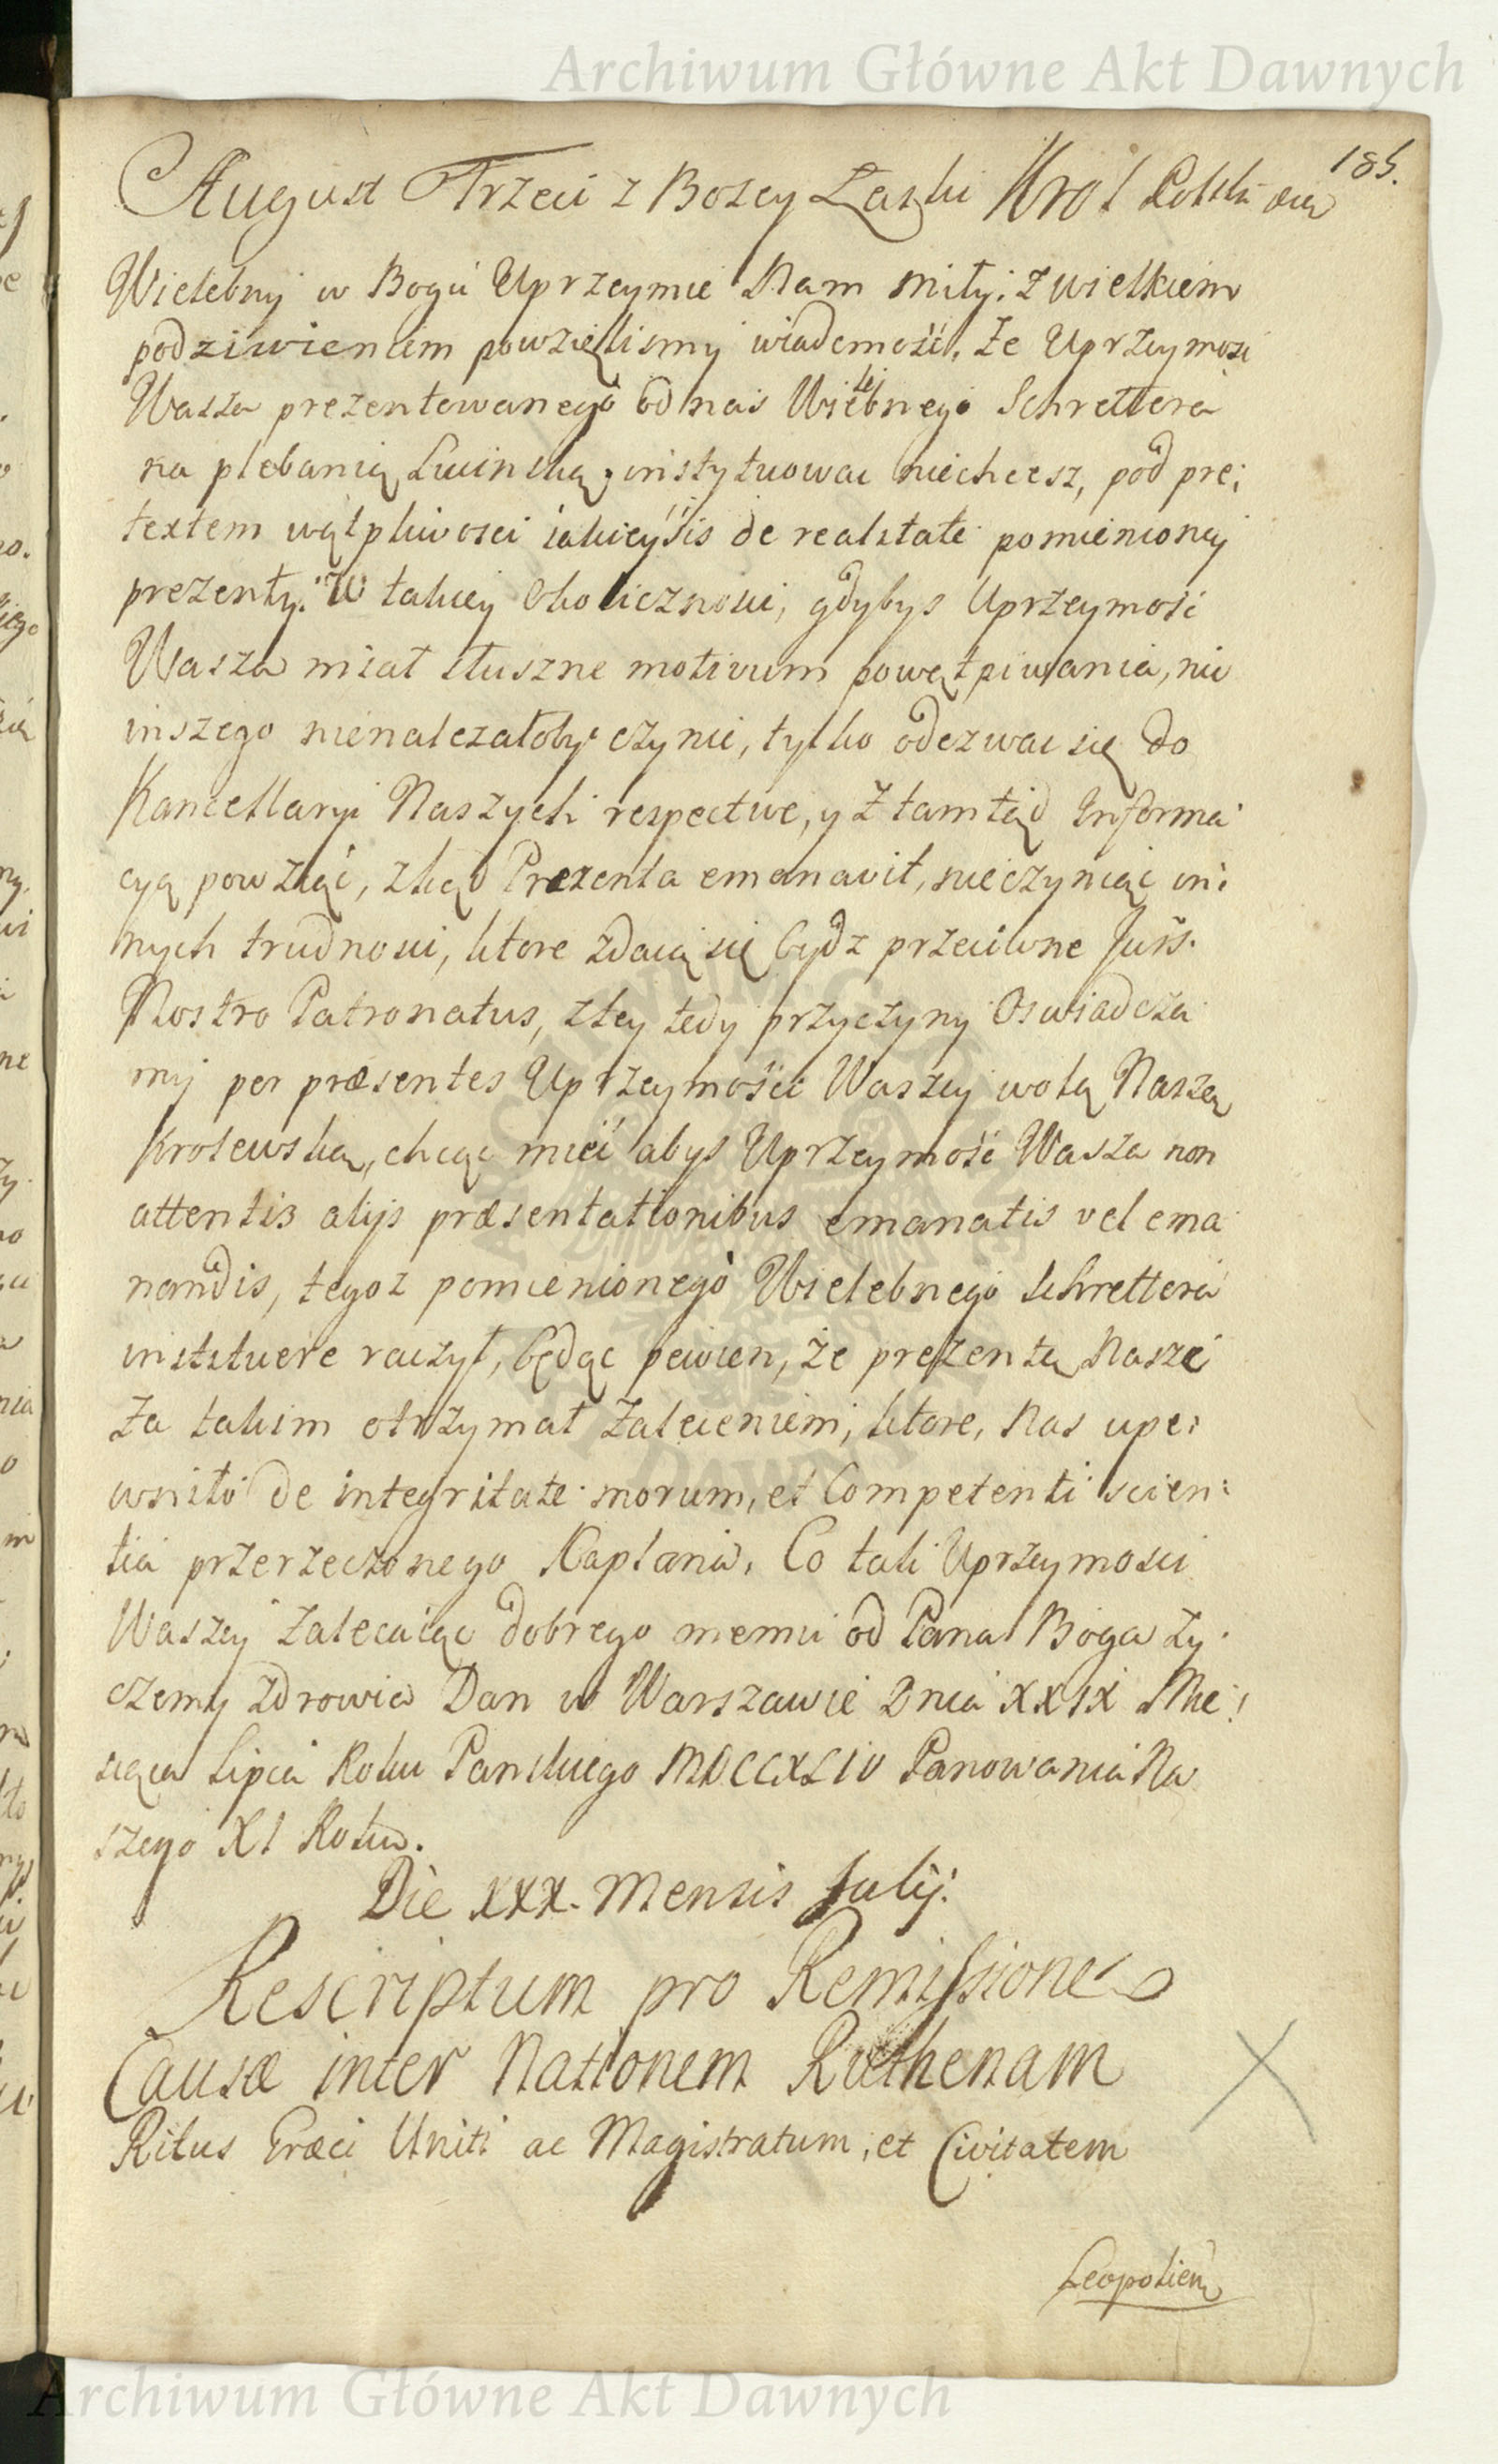 Archiwum Główne Akt Dawnych
185.
August Trzeci z Bozey Łaski Krol Polski
Wielebny w Bogu Uprzeymie Nam miły. Z wielkiem
podziwieniem powzięlismy wiadomość, że Uprzeymość
Wasza prezentowanego od nas Wielebnego Schrettera
na plebanią instytuowac niechcesz, pod pre:
textem wątpliwosci iakieyśis de realitate pomienioney
prezenty. W takiey okolicznosci, gdybys Uprzeymość
Wasza miał słuszne motivum powątpiwania, nic
inszego nienalezałoby czynic, tylko odezwac się do
Kancellaryi Naszych respective, y z tamtąd Informa
cyą powziąć, zkąd Prezenta emanavit, nieczyniąc in:
nych trudnosci, ktore zdaią się bydz przeciwne Juri
Nostro Patronatus, z tey tedy przyczyny Oswiadcza
my per præsentes Uprzeymości Waszey wolą Naszą
Krolewską, chcąc mieć abys Uprzeymość Wasza non
attentis alijs præsentationibus emanatis vel ema
nandis, tegoz pomienionego Wielebnego Schrettera
instituere raczył, będąc pewien, że prezentę Naszę
za takim otrzymał zaleceniem, ktore, Nas upe:
wniło de integritate morum, et Competenti scien:
tia przerzeczonego Kapłana. Co tak Uprzeymosci
Waszey zalecaiąc dobrego niemu od Pana Boga zy
czemy zdrowia Dan w Warszawie Dnia XXIX Mie:
siąca Lipca Roku Panskiego MDCCXLIV Panowania Na
szego XI Roku.
Die XXX. Mensis Julij.
Rescriptum pro Remissione
Causæ inter Nationem Ruthenam
Ritus Græci Uniti ac Magistratum, et Civitatem
Leopolien
Archiwum Główne Akt Dawnych